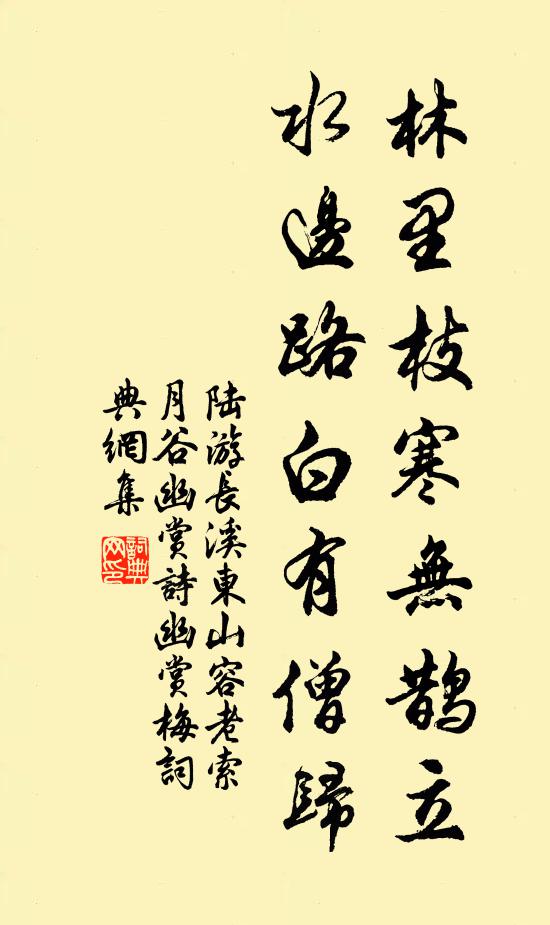 林里枝寒無鵲立
水邊路白有僧歸
陆游長溪東山容老索
月谷幽賞詩幽賞梅詞
典網集
詞典
网印